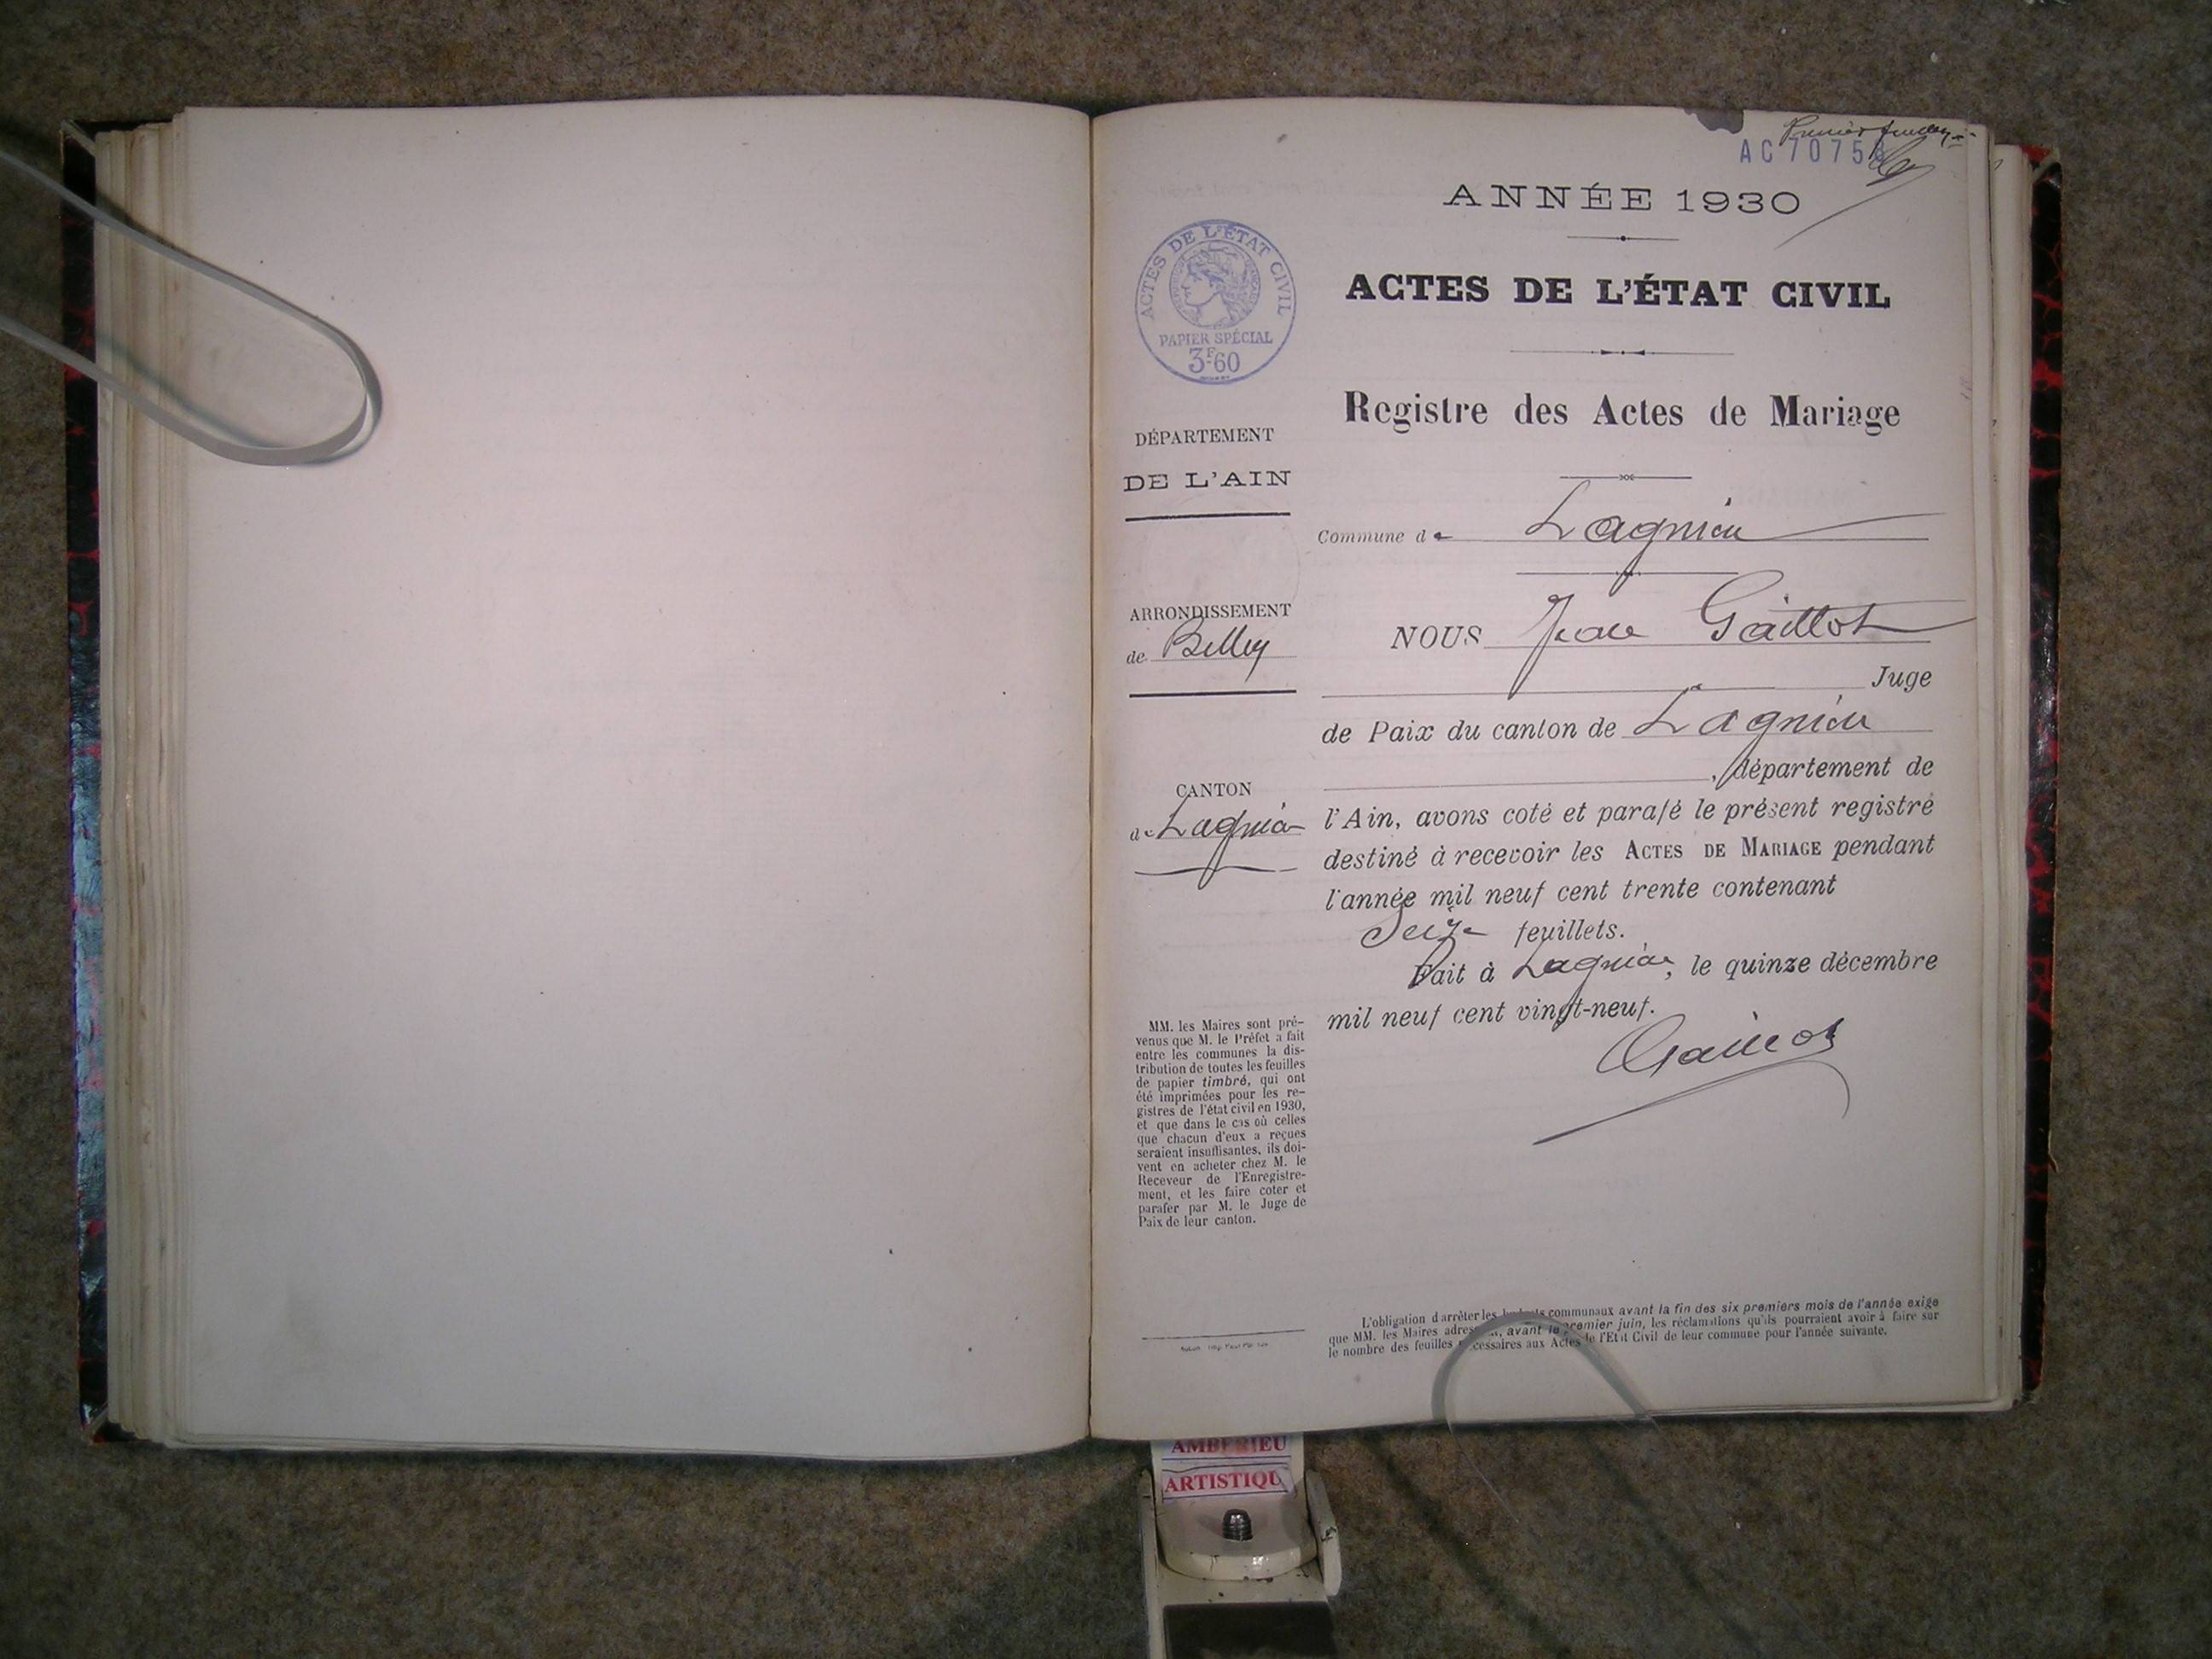 Premier feuillet
AC 7075
ANNÉE 1930
ACTES DE L'ÉTAT CIVIL
RÉPUBLIQUE FRANÇAISE
PAPIER SPÉCIAL
3F60
ACTES DE L'ÉTAT CIVIL
Registre des Actes de Mariage
DÉPARTEMENT
DE L'AIN
Commune de Lagnieu
ARRONDISSEMENT
de Belley
NOUS Jean Gaillot
Juge
de Paix du canton de Lagnieu
, département de
CANTON
de Lagnieu
l'Ain, avons coté et parafé le présent registre
destiné à recevoir les ACTES DE MARIAGE pendant
l'année mil neuf cent trente contenant
Seize feuillets.
Fait à Lagnieu, le quinze décembre
mil neuf cent vingt-neuf.
Gaillot
MM. les Maires sont pré-
venus que M. le Préfet a fait
entre les communes la dis-
tribution de toutes les feuilles
de papier timbré, qui ont
été imprimées pour les re-
gistres de l'état civil en 1930,
et que dans le cas où celles
que chacun d'eux a reçues
seraient insuffisantes, ils doi-
vent en acheter chez M. le
Receveur de l'Enregistre-
ment, et les faire coter et
parafer par M. le Juge de
Paix de leur canton.
L'obligation d'arrêter les budgets communaux avant la fin des six premiers mois de l'année exige
que MM. les Maires adressent, avant le premier juin, les réclamations qu'ils pourraient avoir à faire sur
le nombre des feuilles nécessaires aux Actes de l'Etat Civil de leur commune pour l'année suivante.
AMBERIEU
ARTISTIQU